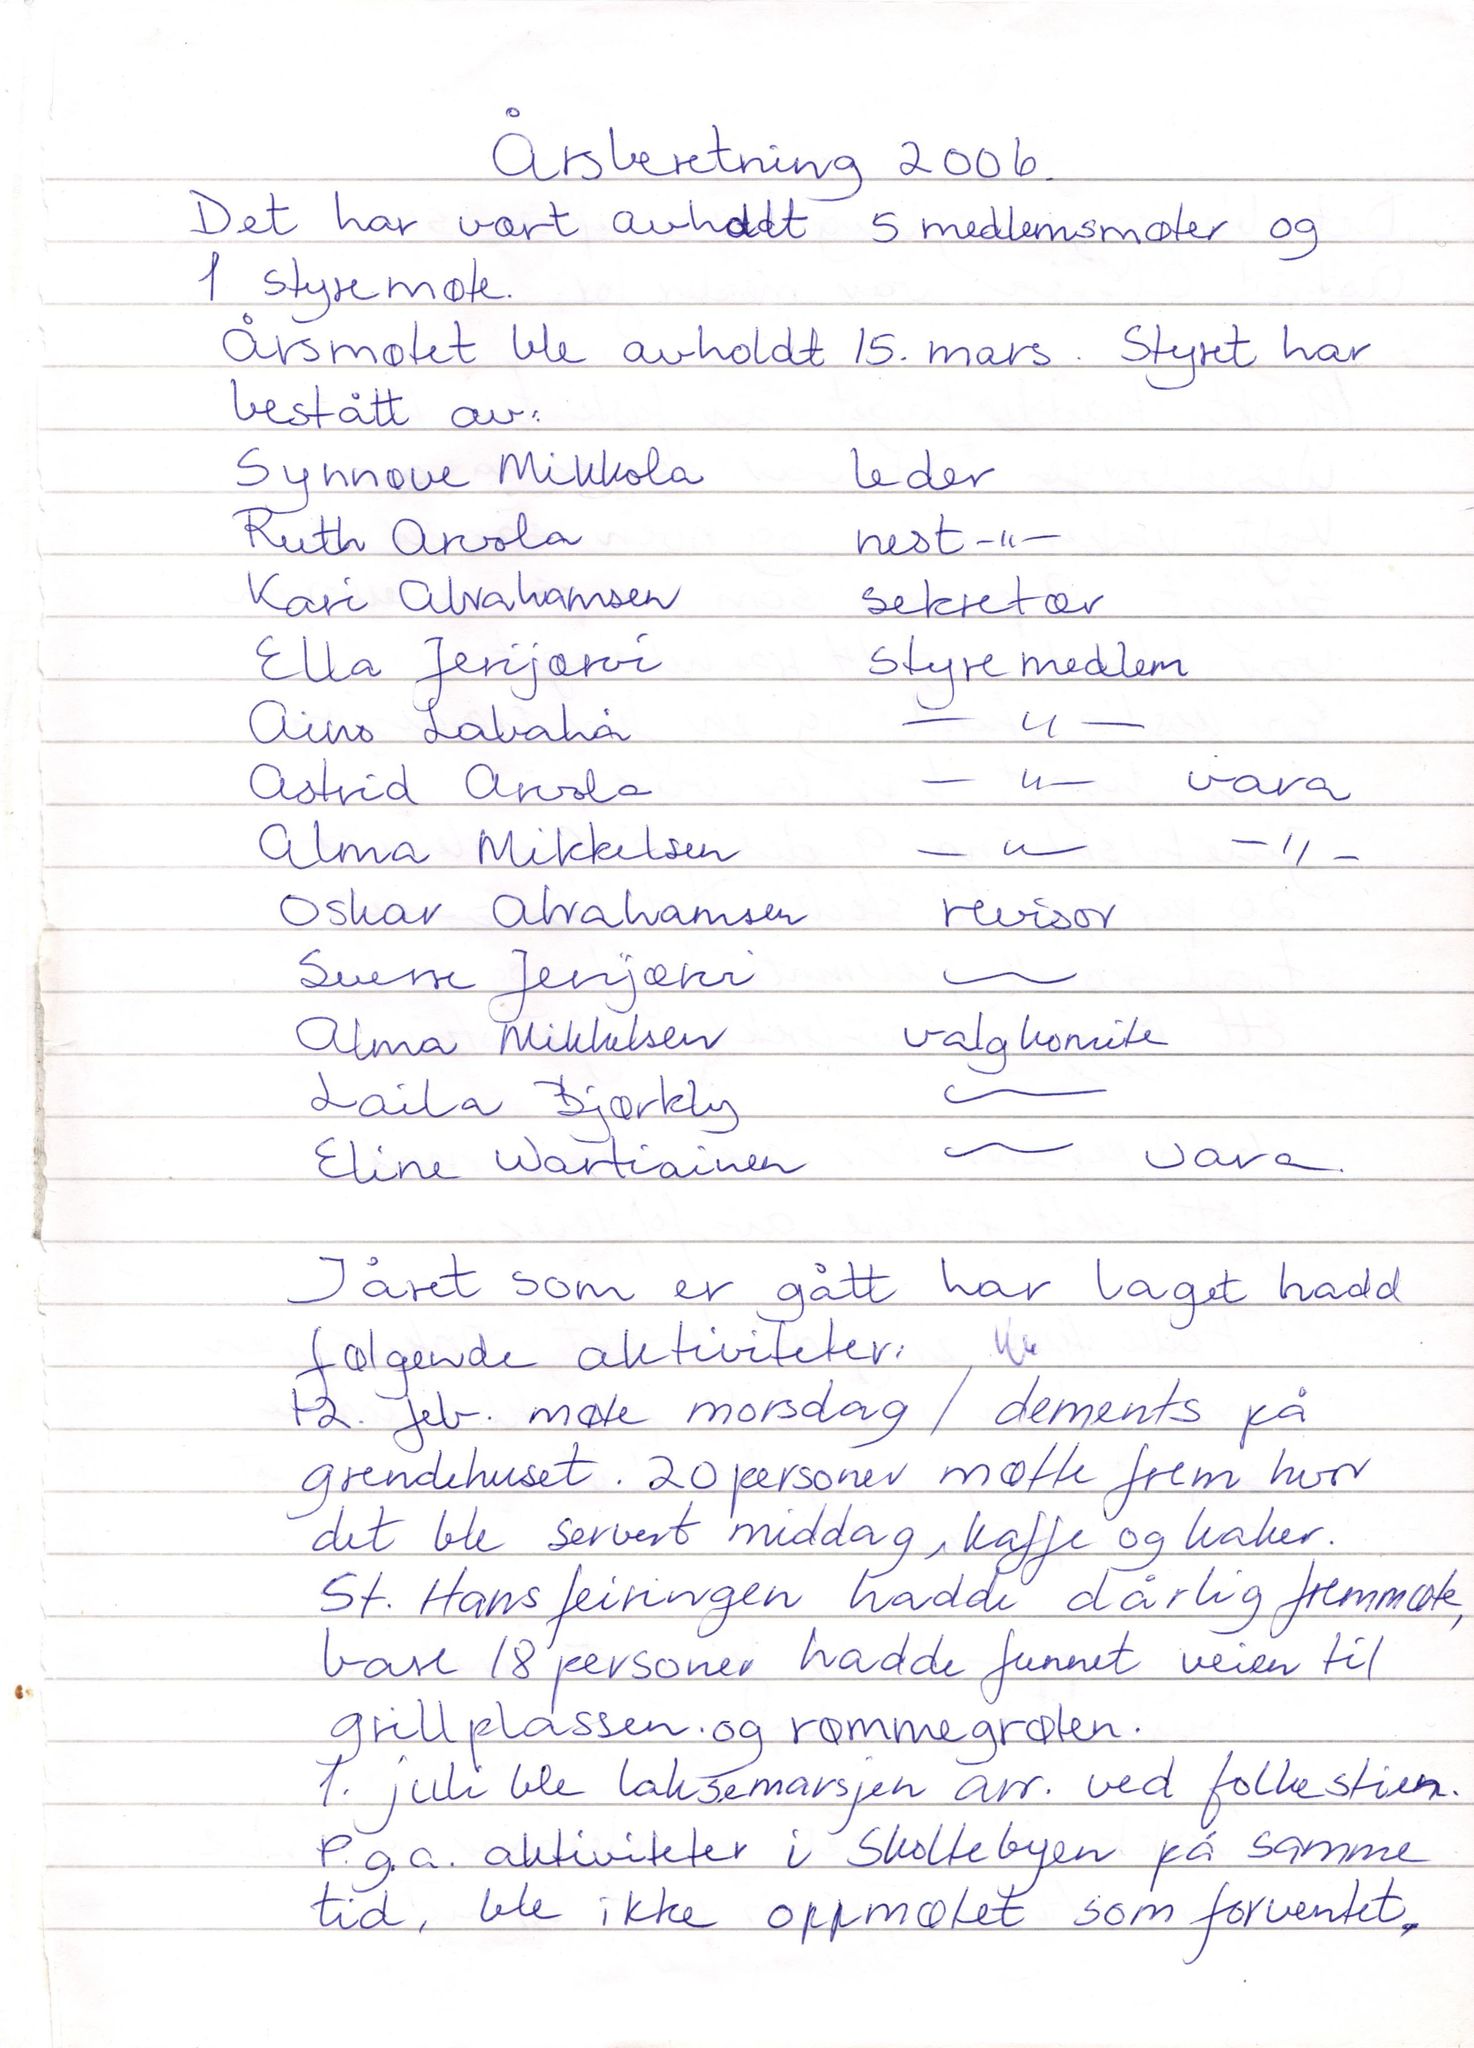 Årsberetning 2006.
Det har vært avholdt 5 medlemsmøter og
1 styremøte.
Årsmøtet ble avholdt 15. mars. Styret har
bestått av:
Synnøve Mikkola leder
Ruth Arvola nest -"-
Kari Abrahamsen sekretær
Ella Jerijærvi styremedlem
Aino Labahå — " —
Astrid Arvola — " — vara
Alma Mikkelsen — " — - " -
Oskar Abrahamsen revisor
Sverre Jerijærvi ~
Alma Mikkelsen valgkomite
Laila Bjørkly ~
Eline Wartiainen ~ vara.
I året som er gått har laget hadd
følgende aktiviteter:
12. feb. møte morsdag / dements på
grendehuset. 20 personer møtte frem hvor
det ble servert middag, kaffe og kaker.
St. Hans feiringen hadde dårlig fremmøte,
bare 18 personer hadde funnet veien til
grillplassen. og rømmegrøten.
1. juli ble laksemarsjen arr. ved folkestien.
P.g.a. aktiviteter i Skoltebyen på samme
tid, ble ikke oppmøtet som forventet.